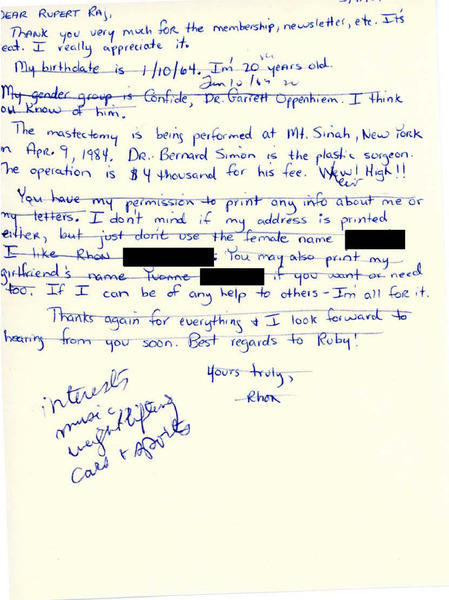 DEAR RUPERT RAJ,
THANK YOU VERY MUCH FOR THE MEMBERSHIP, NEWSLETTER, ETC. ITS
eat. I REALLY APPRECIATE IT.
MY BIRTHDATE IS 1/10/64. I'M 20 YEARS OLD.
Jan 10/64
MY GENDER GROUP IS CONFIDE, DR. GARRETT OPPENHIEM. I THINK
OU KNOW OF HIM.
THE MASTECTOMY IS BEING PERFORMED AT MT. SINAH, NEW YORK
N APR. 9, 1984. DR. BERNARD SIMON IS THE PLASTIC SURGEON.
THE OPERATION IS $4 THOUSAND FOR HIS FEE. WEW! HIGH!!
YOU HAVE MY PERMISSION TO PRINT ANY INFO ABOUT ME OR
MY LETTERS. I DON'T MIND IF MY ADDRESS IS PRINTED
EITHER, BUT JUST DON'T USE THE FEMALE NAME
I LIKE RHON . YOU MAY ALSO PRINT MY
GIRLFRIEND'S NAME YVONNE IF YOU WANT OR NEED
TOO. IF I CAN BE OF ANY HELP TO OTHERS - I'M ALL FOR IT.
THANKS AGAIN FOR EVERYTHING & I LOOK FORWARD TO
HEARING FROM YOU SOON. BEST REGARDS TO RUBY!
YOURS TRULY,
RHON
interests
music
weightlifting
cars + sports